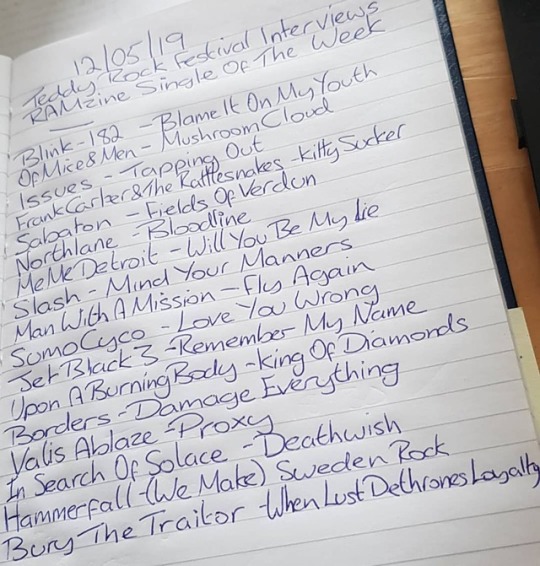 12/05/19
Teddy Rock Festival Interviews
RAMzine Single Of The Week
Blink-182 - Blame It On My Youth
Of Mice & Men - Mushroom Cloud
Issues - Tapping Out
Frank Carter & The Rattlesnakes - Kitty Sucker
Sabaton - Fields Of Verdun
Northlane - Bloodline
MeMe Detroit - Will You Be My Lie
Slash - Mind Your Manners
Man With A Mission - Fly Again
Sumo Cyco - Love You Wrong
Jet Black 3 - Remember My Name
Upon A Burning Body - King Of Diamonds
Borders - Damage Everything
Valis Ablaze - Proxy
In Search Of Solace - Deathwish
Hammerfall - (We Make) Sweden Rock
Bury The Traitor - When Lust Dethrones Loyalty